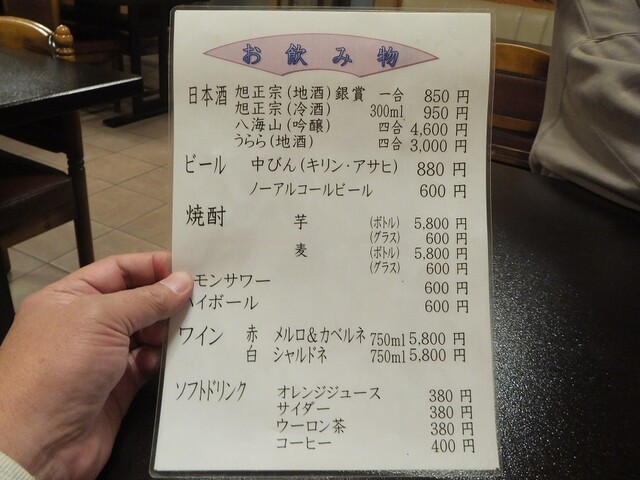 お飲み物
日本酒 旭正宗(地酒)銀賞 一合 850円
旭正宗(冷酒) 300ml 950円
八海山(吟醸) 四合 4,600円
うらら(地酒) 四合 3,000円
ビール 中びん(キリン・アサヒ) 880円
ノーアルコールビール 600円
焼酎 芋 (ボトル) 5,800円
(グラス) 600円
麦 (ボトル) 5,800円
(グラス) 600円
モンサワー 600円
イボール 600円
ワイン 赤 メルロ&カベルネ 750ml 5,800円
白 シャルドネ 750ml 5,800円
ソフトドリンク オレンジジュース 380円
サイダー 380円
ウーロン茶 380円
コーヒー 400円